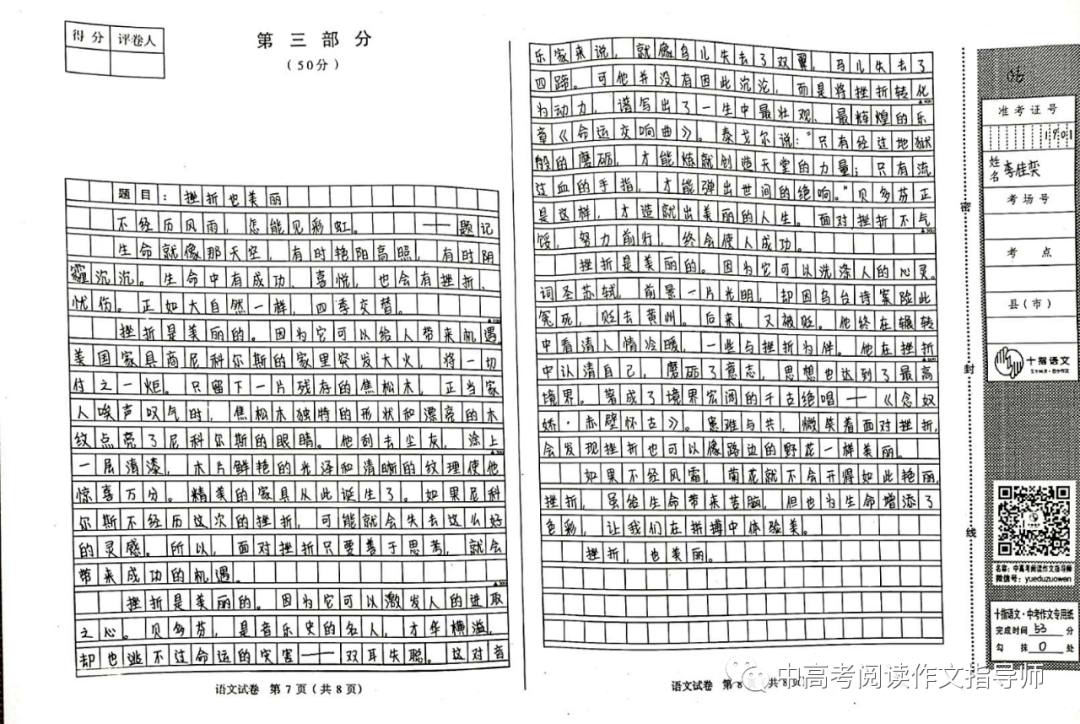 得分 评卷人
第三部分
（50分）
题目：挫折也美丽
不经历风雨，怎能见彩虹。 ——题记
生命就像那天空，有时艳阳高照，有时阴
霾沉沉。生命中有成功、喜悦，也会有挫折、
忧伤。正如大自然一样，四季交替。
挫折是美丽的。因为它可以给人带来机遇。
美国家具商尼科尔斯的家里突发大火，将一切
付之一炬。只留下一片残存的焦松木，正当家
人唉声叹气时，焦松木独特的形状和漂亮的木
纹点亮了尼科尔斯的眼睛。他刮去尘灰，涂上
一层清漆，木片鲜艳的光泽和清晰的纹理使他
惊喜万分。精美的家具从此诞生了。如果尼科
尔斯不经历这次的挫折，可能就会失去这么好
的灵感。所以，面对挫折只要善于思考，就会
带来成功的机遇。
挫折是美丽的。因为它可以激发人的进取
之心。贝多芬，是音乐史的名人，才华横溢，
却也逃不过命运的灾害——双耳失聪。这对音
语文试卷 第7页（共8页）
乐家来说，就像鸟儿失去了双翼，马儿失去了
四蹄。可他并没有因此沉沦，而是将挫折转化
为动力，谱写出了一生中最壮观、最辉煌的乐
章《命运交响曲》。泰戈尔说："只有经过地狱
般的磨砺，才能炼就创造天堂的力量；只有流
过血的手指，才能弹出世间的绝响。"贝多芬正
是这样，才造就出美丽的人生。面对挫折不气
馁，努力前行，终会使人成功。
挫折是美丽的。因为它可以洗涤人的心灵。
词圣苏轼，前景一片光明，却因乌台诗案险些
冤死，贬去黄州。后来，又被贬。他终在辗转
中看清人情冷暖，一些与挫折为伴。他在挫折
中认清自己，磨砺了意志，思想也达到了最高
境界。著成了境界宏阔的千古绝唱——《念奴
娇·赤壁怀古》。患难与共，微笑着面对挫折，
会发现挫折也可以像路边的野花一样美丽。
如果不经风霜，菊花就不会开得如此艳丽。
挫折，虽给生命带来苦恼，但也为生命增添了
色彩，让我们在拼搏中体验美。
挫折，也美丽。
语文试卷 第8页（共8页）
密
封
线
准考证号
姓名 李佳奕
考场号
考点
县（市）
十指语文
名称：中高考阅读作文指导师
微信号：yueduzuowen
十指语文·中考作文专用纸
完成时间 53 分
勾抹 0 处
中高考阅读作文指导师